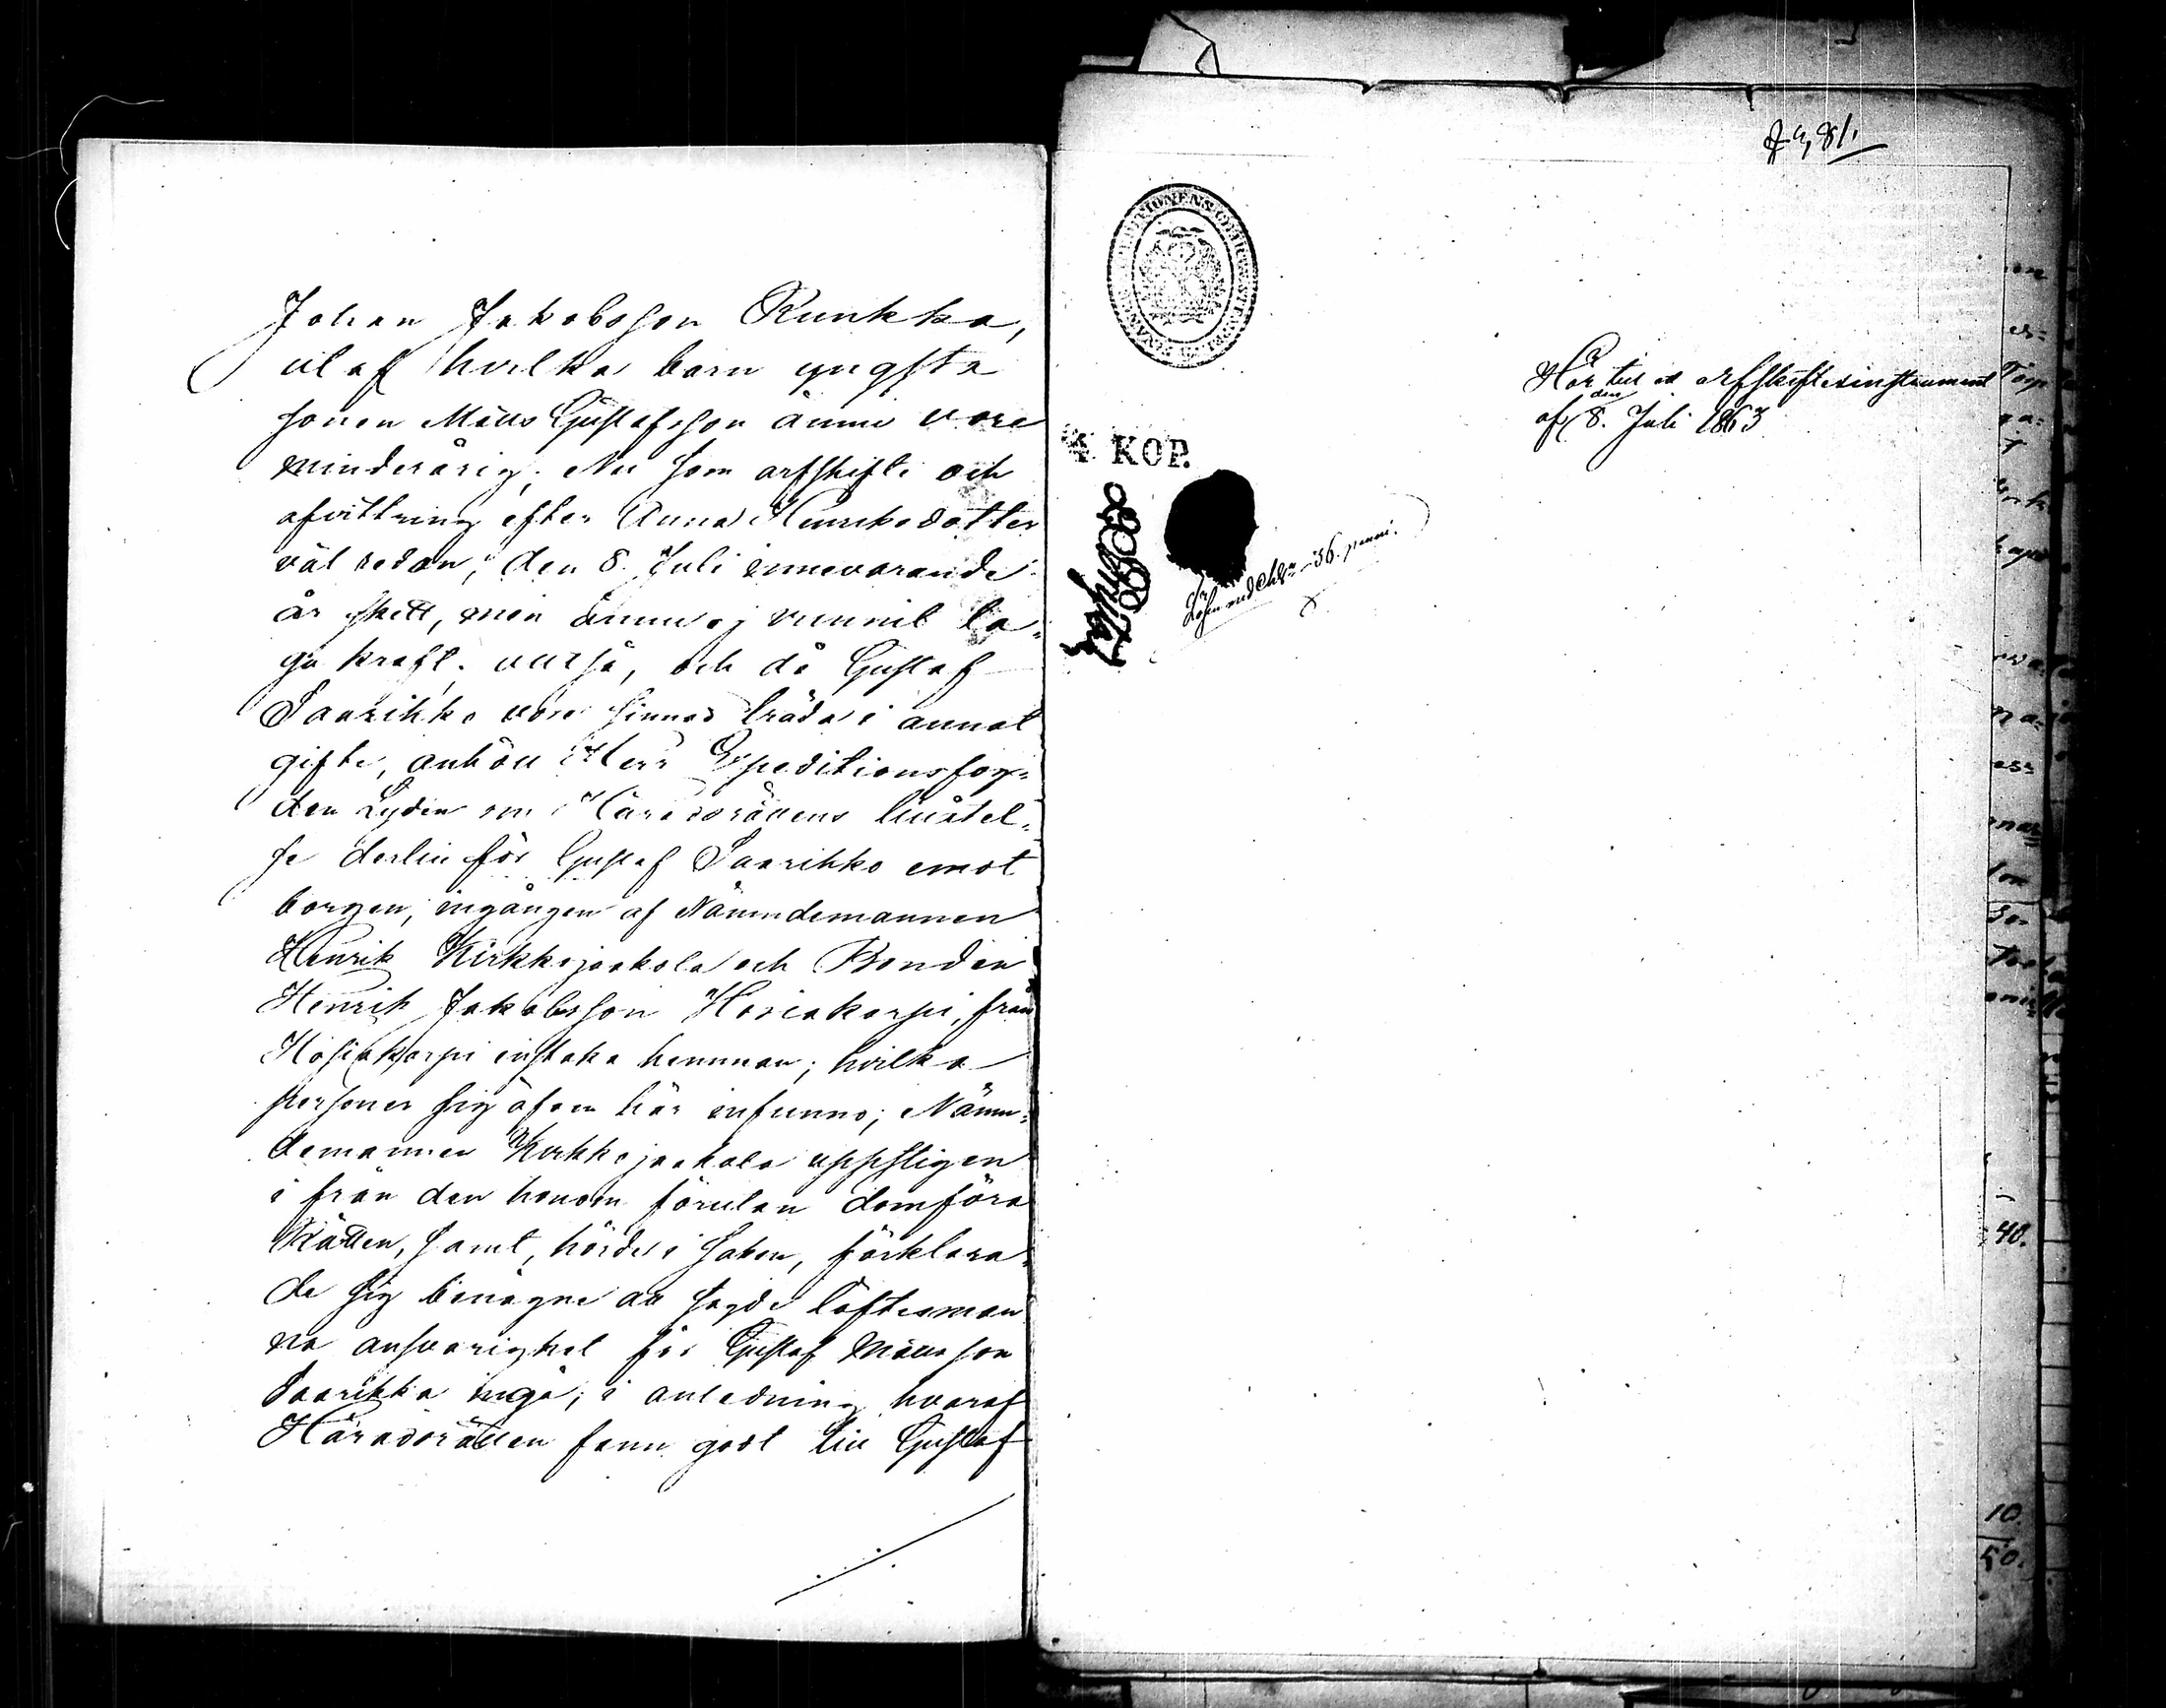 Johan Jakobsson Runkka,
ut af hvilka barn yngsta
sonen Matts Gustafsson ännu vore
minderårig. Nu som arfskifte och
afvittring efter Anna Henriksdotter
väl redan, den 8. Juli innevarande
år skett, men ännu ej vunnit la=
ga kraft, och då Gustaf
Saarikko vore sinnad träda i annat
gifte, anhöll Herr Expeditionsfog=
den Lydén om Häradsrättens tillåtel=
se dertill för Gustaf Saarikko emot
borgen, ingången af Nämndemannen
Henrik Kirkkojaakola och Bonden
Henrik Jakobsson Hosiakorpi, från
Hosiakorpi enstaka hemman; hvilka
personer sig äfven här infunno; Nämn=
demannen Kirkkojaakola uppstigen
i från den honom förutan domföra
Rätten, samt, hörde i saken, förklara=
de sig benägne att sagde löftesman
na ansvarighet för Gustaf Mattsson
Saarikko ingå; i anledning hvaraf
Häradsrätten fann godt till Gustaf
§ 4,81.
4 KOP.
Hör till ett arfskiftesinstrument
af den 8. Juli 1863
36. penni.
40.
10.
50.